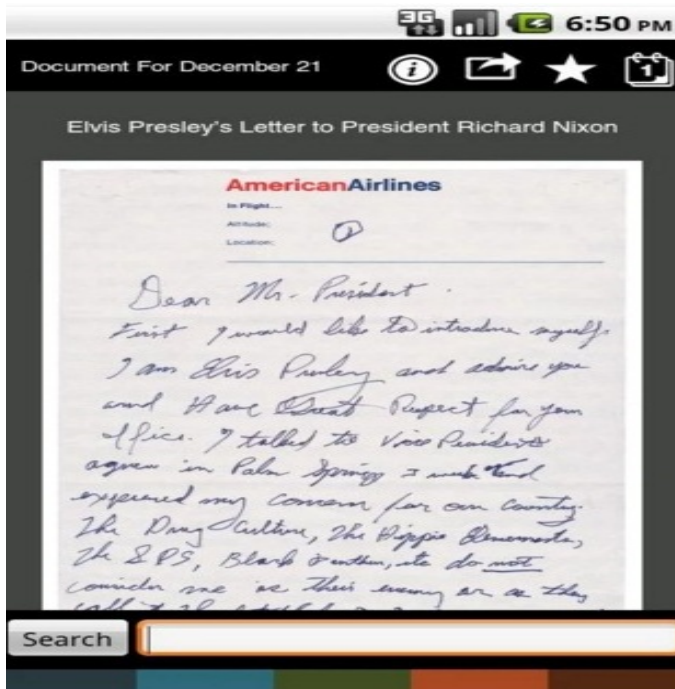 3G 6:50 PM
Document For December 21
1
Elvis Presley's Letter to President Richard Nixon
AmericanAirlines
In Flight...
Altitude;
Location;
1
Dear Mr. President.
First I would like to introduce myself.
I am Elvis Presley and admire you
and Have Great Respect for your
office. I talked to Vice President
agnew in Palm Springs 3 weeks and
expressed my concern for our country.
The Drug Culture, The Hippie Elements,
The SDS, Black Panthers, etc do not
consider me as their enemy or as they
call it The
Search